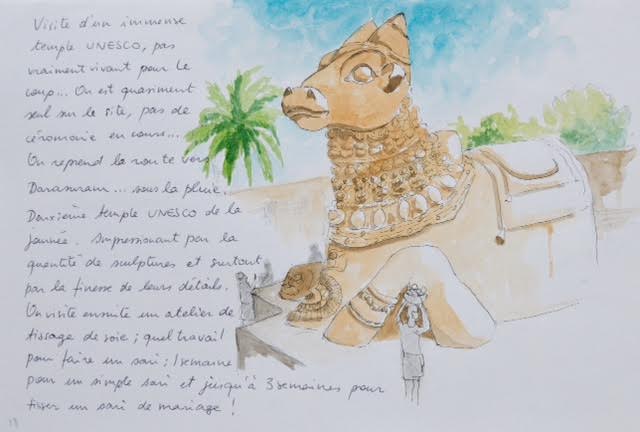 Visite d'un immense
temple UNESCO, pas
vraiment vivant pour le
coup... On est quasiment
seul sur le site, pas de
cérémonie en cours...
On reprend la route vers
Darasuram... sous la pluie.
Deuxième temple UNESCO de la
journée. Impressionant par la
quantité de sculptures et surtout
par la finesse de leurs détails.
On visite ensuite un atelier de
tissage de soie ; quel travail
pour faire un sari : 1 semaine
pour un simple sari et jusqu'à 3 semaines pour
tisser un sari de mariage !